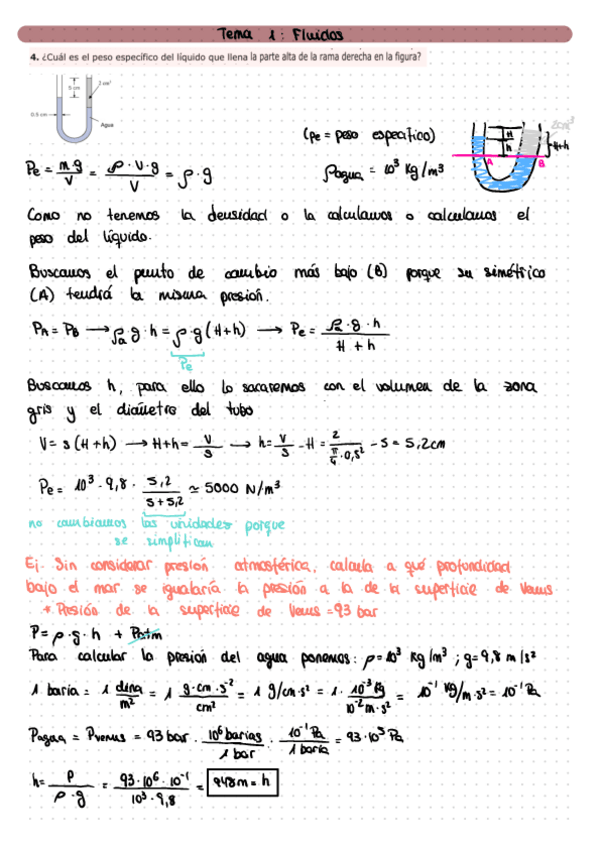 Tema 1: Fluidos
4. ¿Cuál es el peso específico del líquido que llena la parte alta de la rama derecha en la figura?
5 cm
2 cm³
0.5 cm
Agua
(Pe = peso específico)
2cm³
H
h
H+h
A
B
Pe = m·g/V = ρ·V·g/V = ρ·g
ρagua = 10³ Kg/m³
Como no tenemos la densidad o la calculamos o calculamos el
peso del líquido.
Buscamos el punto de cambio más bajo (B) porque su simétrico
(A) tendrá la misma presión.
PA = PB → ρa·g·h = ρ·g(H+h) → Pe = ρa·g·h / H+h
Pe
Buscamos h, para ello lo sacaremos con el volumen de la zona
gris y el diámetro del tubo
V = s(H+h) → H+h = V/s → h = V/s - H = 2 / π/4·0,5² - 5 = 5,2cm
Pe = 10³·9,8· 5,2 / 5+5,2 ≃ 5000 N/m³
no cambiamos las unidades porque
se simplifican
Ej. Sin considerar presión atmosférica, calcula a qué profundidad
bajo el mar se igualaría la presión a la de la superficie de Venus
* Presión de la superficie de Venus = 93 bar
P = ρ·g·h + Patm
Para calcular la presión del agua ponemos: ρ = 10³ Kg/m³ ; g = 9,8 m/s²
1 baria = 1 dina/m² = 1 g·cm·s⁻²/cm² = 1 g/cm·s² = 1· 10⁻³Kg/10⁻²m·s² = 10⁻¹ Kg/m·s² = 10⁻¹ Pa
Pagua = Pvenus = 93 bar · 10⁶ barias/1 bar · 10⁻¹ Pa/1 baria = 93·10⁵ Pa
h = P/ρ·g = 93·10⁶·10⁻¹/10³·9,8 = 948m = h